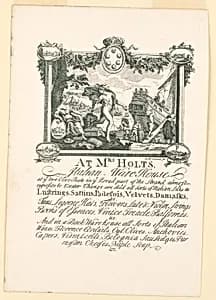 At Mrs. HOLTS,
Italian Ware House
at ye two Olive Posts in ye Broad part of the Strand almost
opposite to Exeter Change are sold all Sorts of Italian Silks as
Lustrings, Sattins, Padesois, Velvets, Damasks,
Fans, Legorne Hats, Flowers, Lute & Violin Strings
Books of Essences, Venice Treacle, Balsomes,
&c.
And in a Back Ware House all Sorts of Italian
Wine, Florence Cordials, Oyl, Olives, Anchovies,
Capers, Vermicelli, Bolognia Sausidges, Par=
mesan Cheeses, Naple Soap,